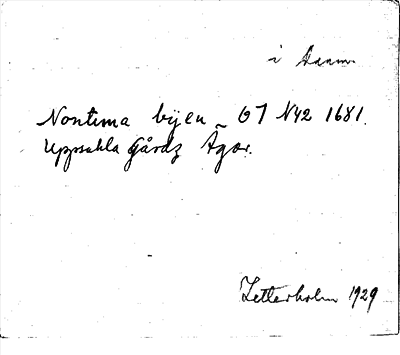 i
Nontuna byen – G7 N42 1681.
Uppsahla Gårdz Ägor.
Zetterholm 1929